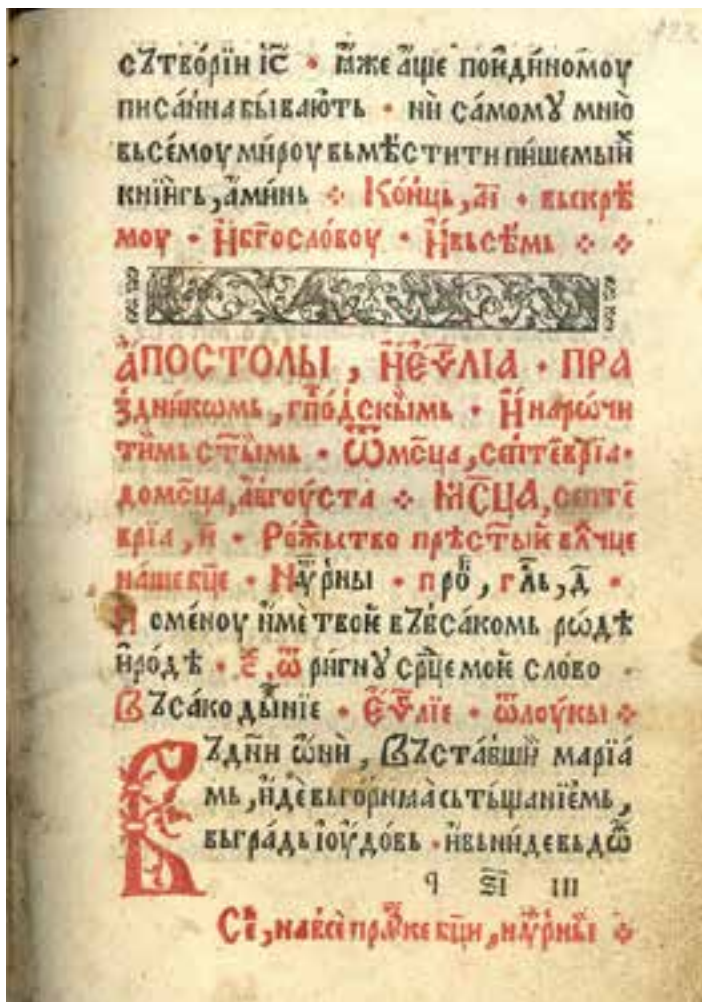 сътвори́и іс҃ • ꙗ҆́же а҆ще поѥди́номоу
писа́нна быва́ють • ни са́момꙋ мню̀
вьсе́моу ми́роу вьмѣсти́ти пи́шемый
кни́нгь, а҆ми́нь ⁘ Ко́нць, аі҃ • выскрⷭ҇ѣ
моу • И҆бг҃осло́воу • И҆вьсѣ́мь ⁘ ⁘
а҆ПОСТОЛЫ, И҆Е҆Ѵ҃ЛІА • ПРА
здни́кѡмь, гпⷭ҇о́дскы́мь • И҆наро́чи
ти́мь ст҃ы́мь • Ѿмⷭ҇ца, септе́врїа •
домⷭ҇ца, а҆́вгоуста ⁘ МⷭЦ҇А, септе́
врїа, и҃ • Рожⷣьство прѣст҃ы́й влⷣчце
на́ше бц҃е • На ѹ҆́трны • про́ⷦ, гл҃ь, д҃ •
Поме́ноу и҆́ме твоѐ въвса́комь ро́дѣ
и҆ро́дѣ • сⷯ, ѿ ри́гнꙋ срⷣце моѐ сло́во
Въса́ко ды́нїе • Е҆ѵⷢ҇лїе • ѿлоукы̀ ⁘
Въдни ѡ҆́ни, Въста́вши марїа́
мь, и҆́де вьго́рнꙗа сьтьща́нїе́мь,
вьгра́дь і҆оу́довь • и҆вьни́де вьдѡⷨ
ч ѕі҃ ııı
Сⷯе, на всѐ пра́ꙁке бц҃и, на ѹ҆́трны ⁘
122